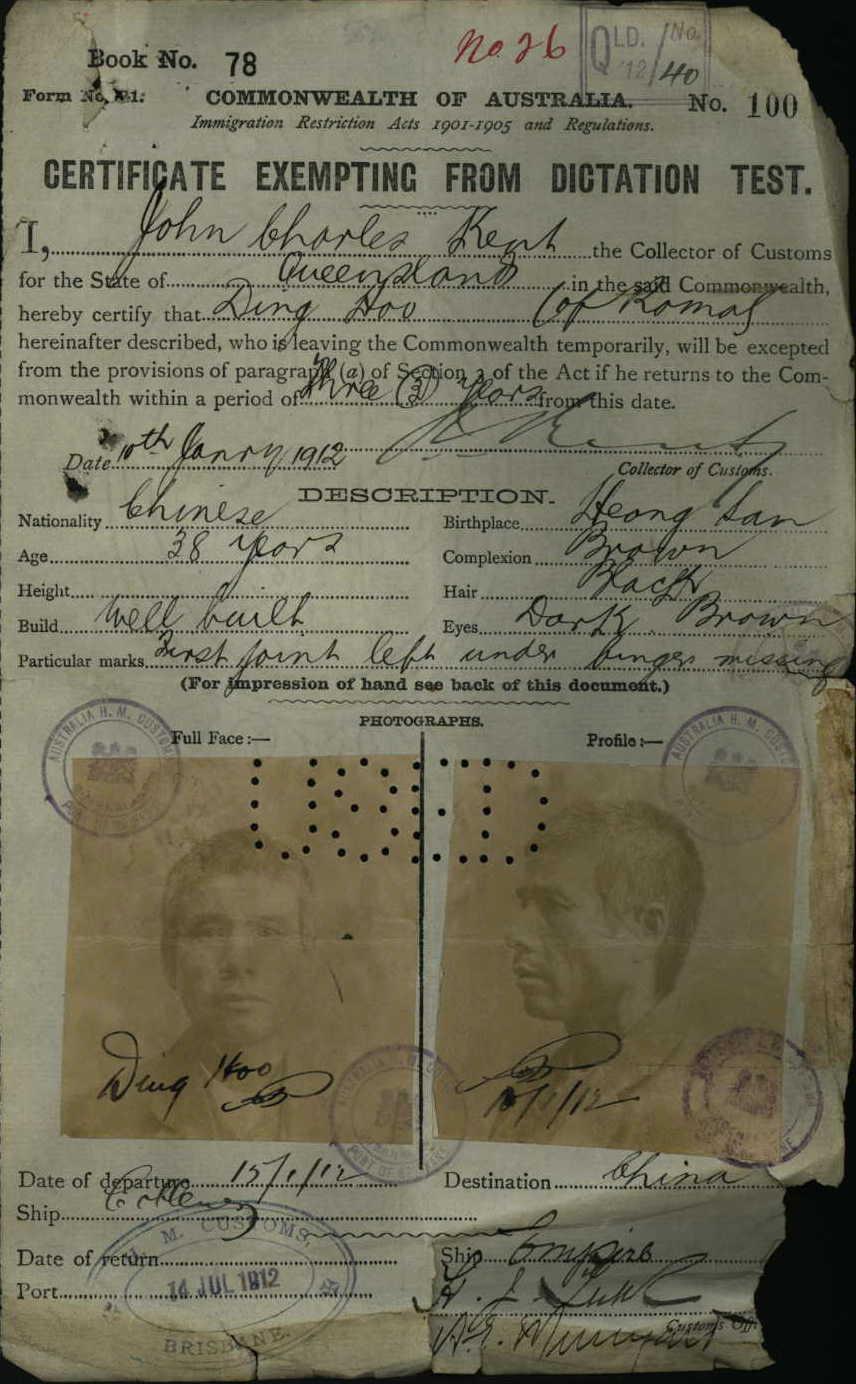 Book No. 78
No. 26
QLD. No.
12/40
Form No. 21.
COMMONWEALTH OF AUSTRALIA.
No. 100
Immigration Restriction Acts 1901-1905 and Regulations.
CERTIFICATE EXEMPTING FROM DICTATION TEST.
I, John Charles Kent the Collector of Customs
for the State of Queensland in the said Commonwealth,
hereby certify that Ding Hoo (of Roma)
hereinafter described, who is leaving the Commonwealth temporarily, will be excepted
from the provisions of paragraph (a) of Section 3 of the Act if he returns to the Com-
monwealth within a period of three (3) years from this date.
Date 10th Janry 1912
Collector of Customs.
DESCRIPTION.
Nationality Chinese
Birthplace Heong San
Age 38 years
Complexion Brown
Height
Hair Black
Build Well built
Eyes Dark Brown
Particular marks First joint left finger missing
(For impression of hand see back of this document.)
PHOTOGRAPHS.
Full Face :—
Profile :—
AUSTRALIA H. M. CUSTOMS
AUSTRALIA H. M. CUSTOMS
Ding Hoo
12/1/12
Date of departure 12/1/12
Destination China
Ship
Date of return
Ship Empire
Port
H. M. CUSTOMS,
14 JUL 1912
BRISBANE.
Customs Off